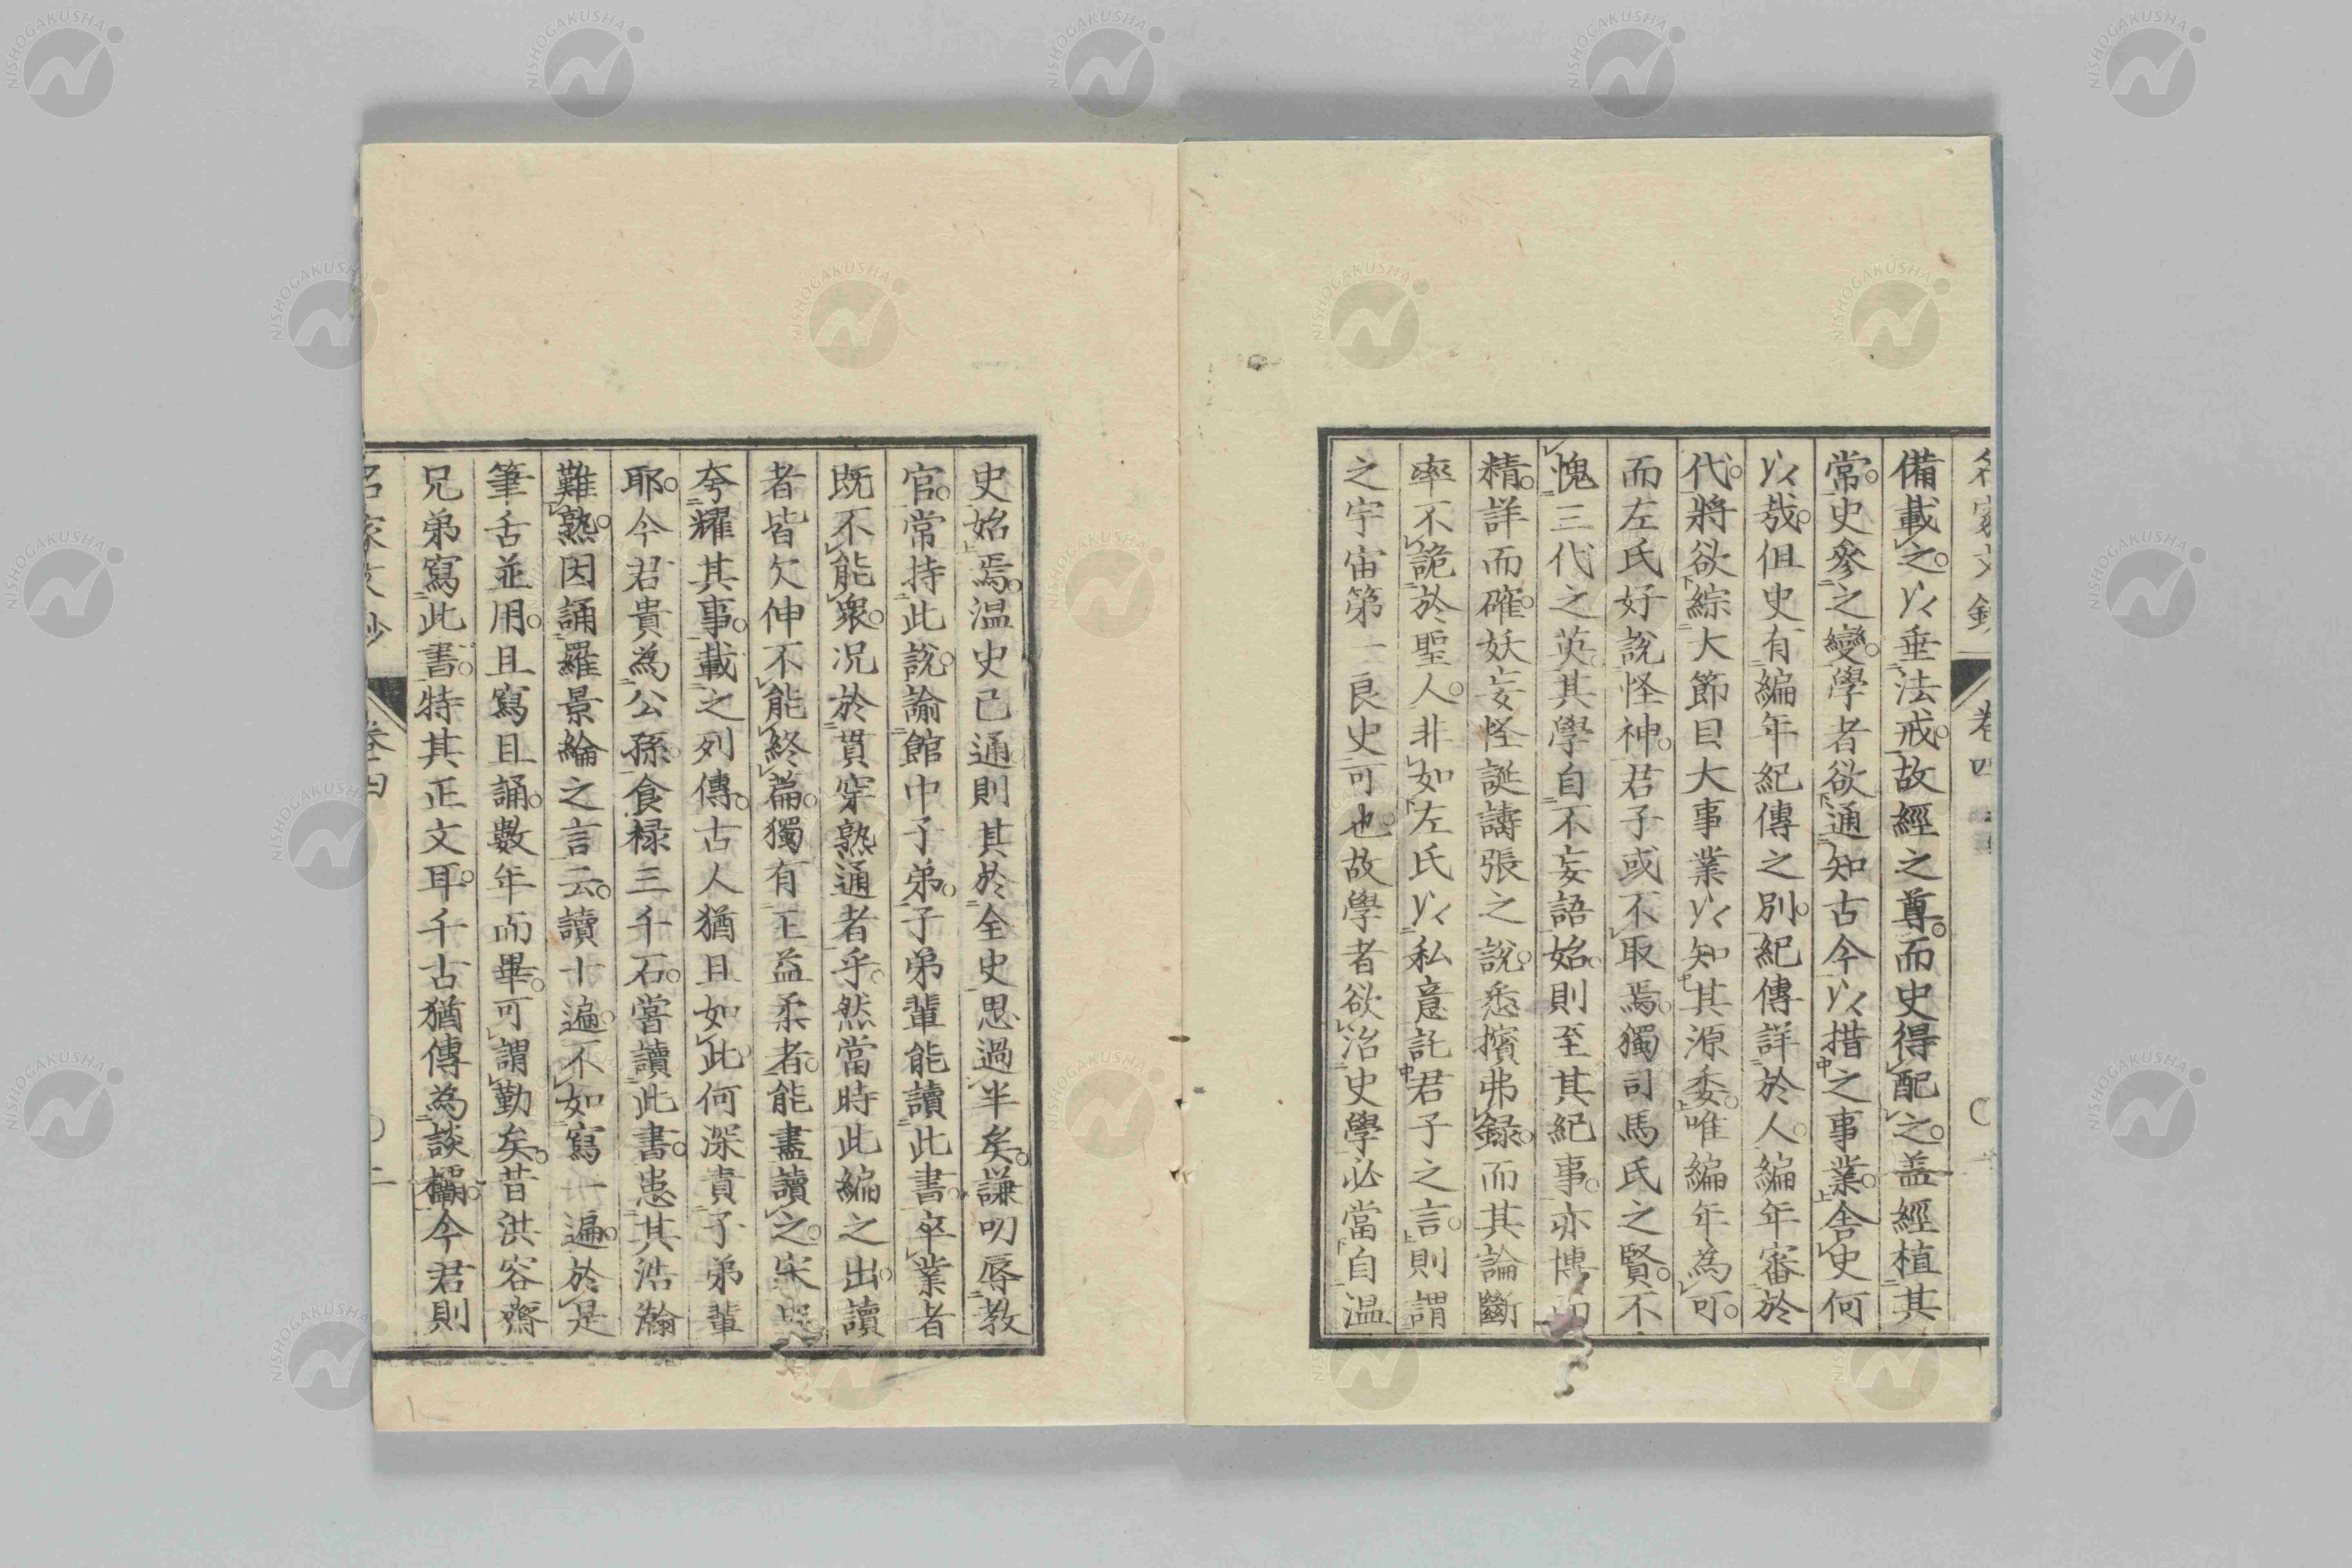 名家文鈔 卷四
備載之。以垂法戒。故經之尊。而史得配之。盖經植其
常。史參之變。學者欲通知古今以措之事業。舎史何
以哉。但史有編年紀傳之別。紀傳詳於人。編年審於
代。將欲綜大節目大事業以知其源委。唯編年為可。
而左氏好說怪神。君子或不取焉。獨司馬氏之賢。不
愧三代之英。其學自不妄語始。則至其紀事。亦博
精。詳而確。妖妄怪誕譸張之說。悉擯弗録。而其論斷
率不詭於聖人。非如左氏以私意託君子之言。則謂
之宇宙第一良史可也。故學者欲治史學必當自温
史始焉。温史已通則其於全史思過半矣。謙叨辱教
官。常持此說。諭館中子弟。子弟輩能讀此書。卒業者
既不能衆。况於貫穿熟通者乎。然當時此編之出。讀
者皆欠伸不能終篇。獨有王益柔者。能盡讀之。宋
夸耀其事。載之列傳。古人猶且如此。何深責子弟輩
耶。今君貴為公孫。食禄三千石。嘗讀此書。患其浩瀚
難熟。因誦羅景綸之言云。讀十遍。不如寫一遍。於是
筆舌並用。且寫且誦。數年而畢。可謂勤矣。昔洪容齋
兄弟寫此書。特其正文耳。千古猶傳為談欛。今君則
名家文鈔 卷四 二